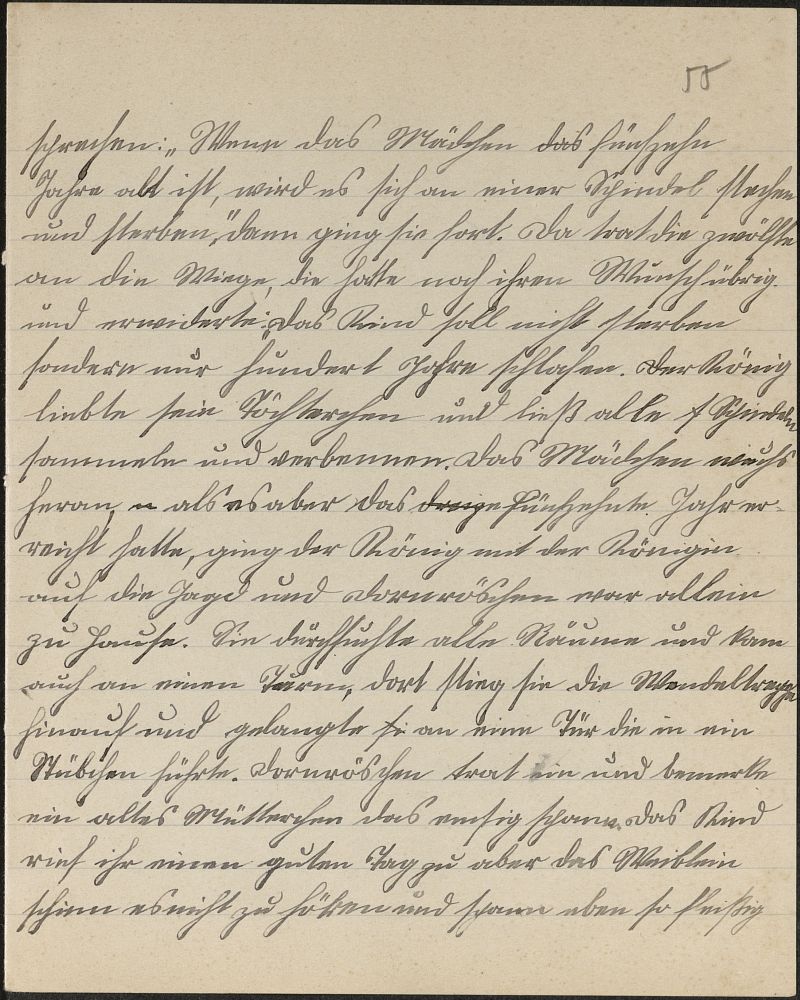 55
sprechen: „Wenn das Mädchen das fünfzehn
Jahre alt ist, wird es sich an einer Spindel stechen
und sterben," dann ging sie fort. Da trat die zwölfte
an die Wiege, die hatte noch ihren Wunsch übrig.
und erwiderte: „Das Kind soll nicht sterben
sondern nur hundert Jahre schlafen. Der König
liebte sein Töchterchen und ließ alle Spindeln
sammeln und verbennen. Das Mädchen wuchs
heran, als es aber das fünfzehnte Jahr er-
reicht hatte, ging der König mit der Königin
auf die Jagd und Dornröschen war allein
zu Hause. Sie durchsuchte alle Räume und kam
auch an einen Turm, dort stieg sie die Wendeltreppe
hinauf und gelangte an eine Tür die in ein
Stübchen führte. Dornröschen trat ein und bemerkte
ein altes Mütterchen das emsig spann. Das Kind
rief ihr einen guten Tag zu aber das Weiblein
schien es nicht zu hören und spann eben so fleißig